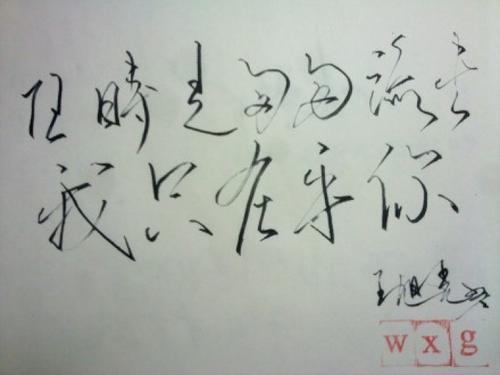 任時光匆匆流去
我只在乎你
王旭光
wxg